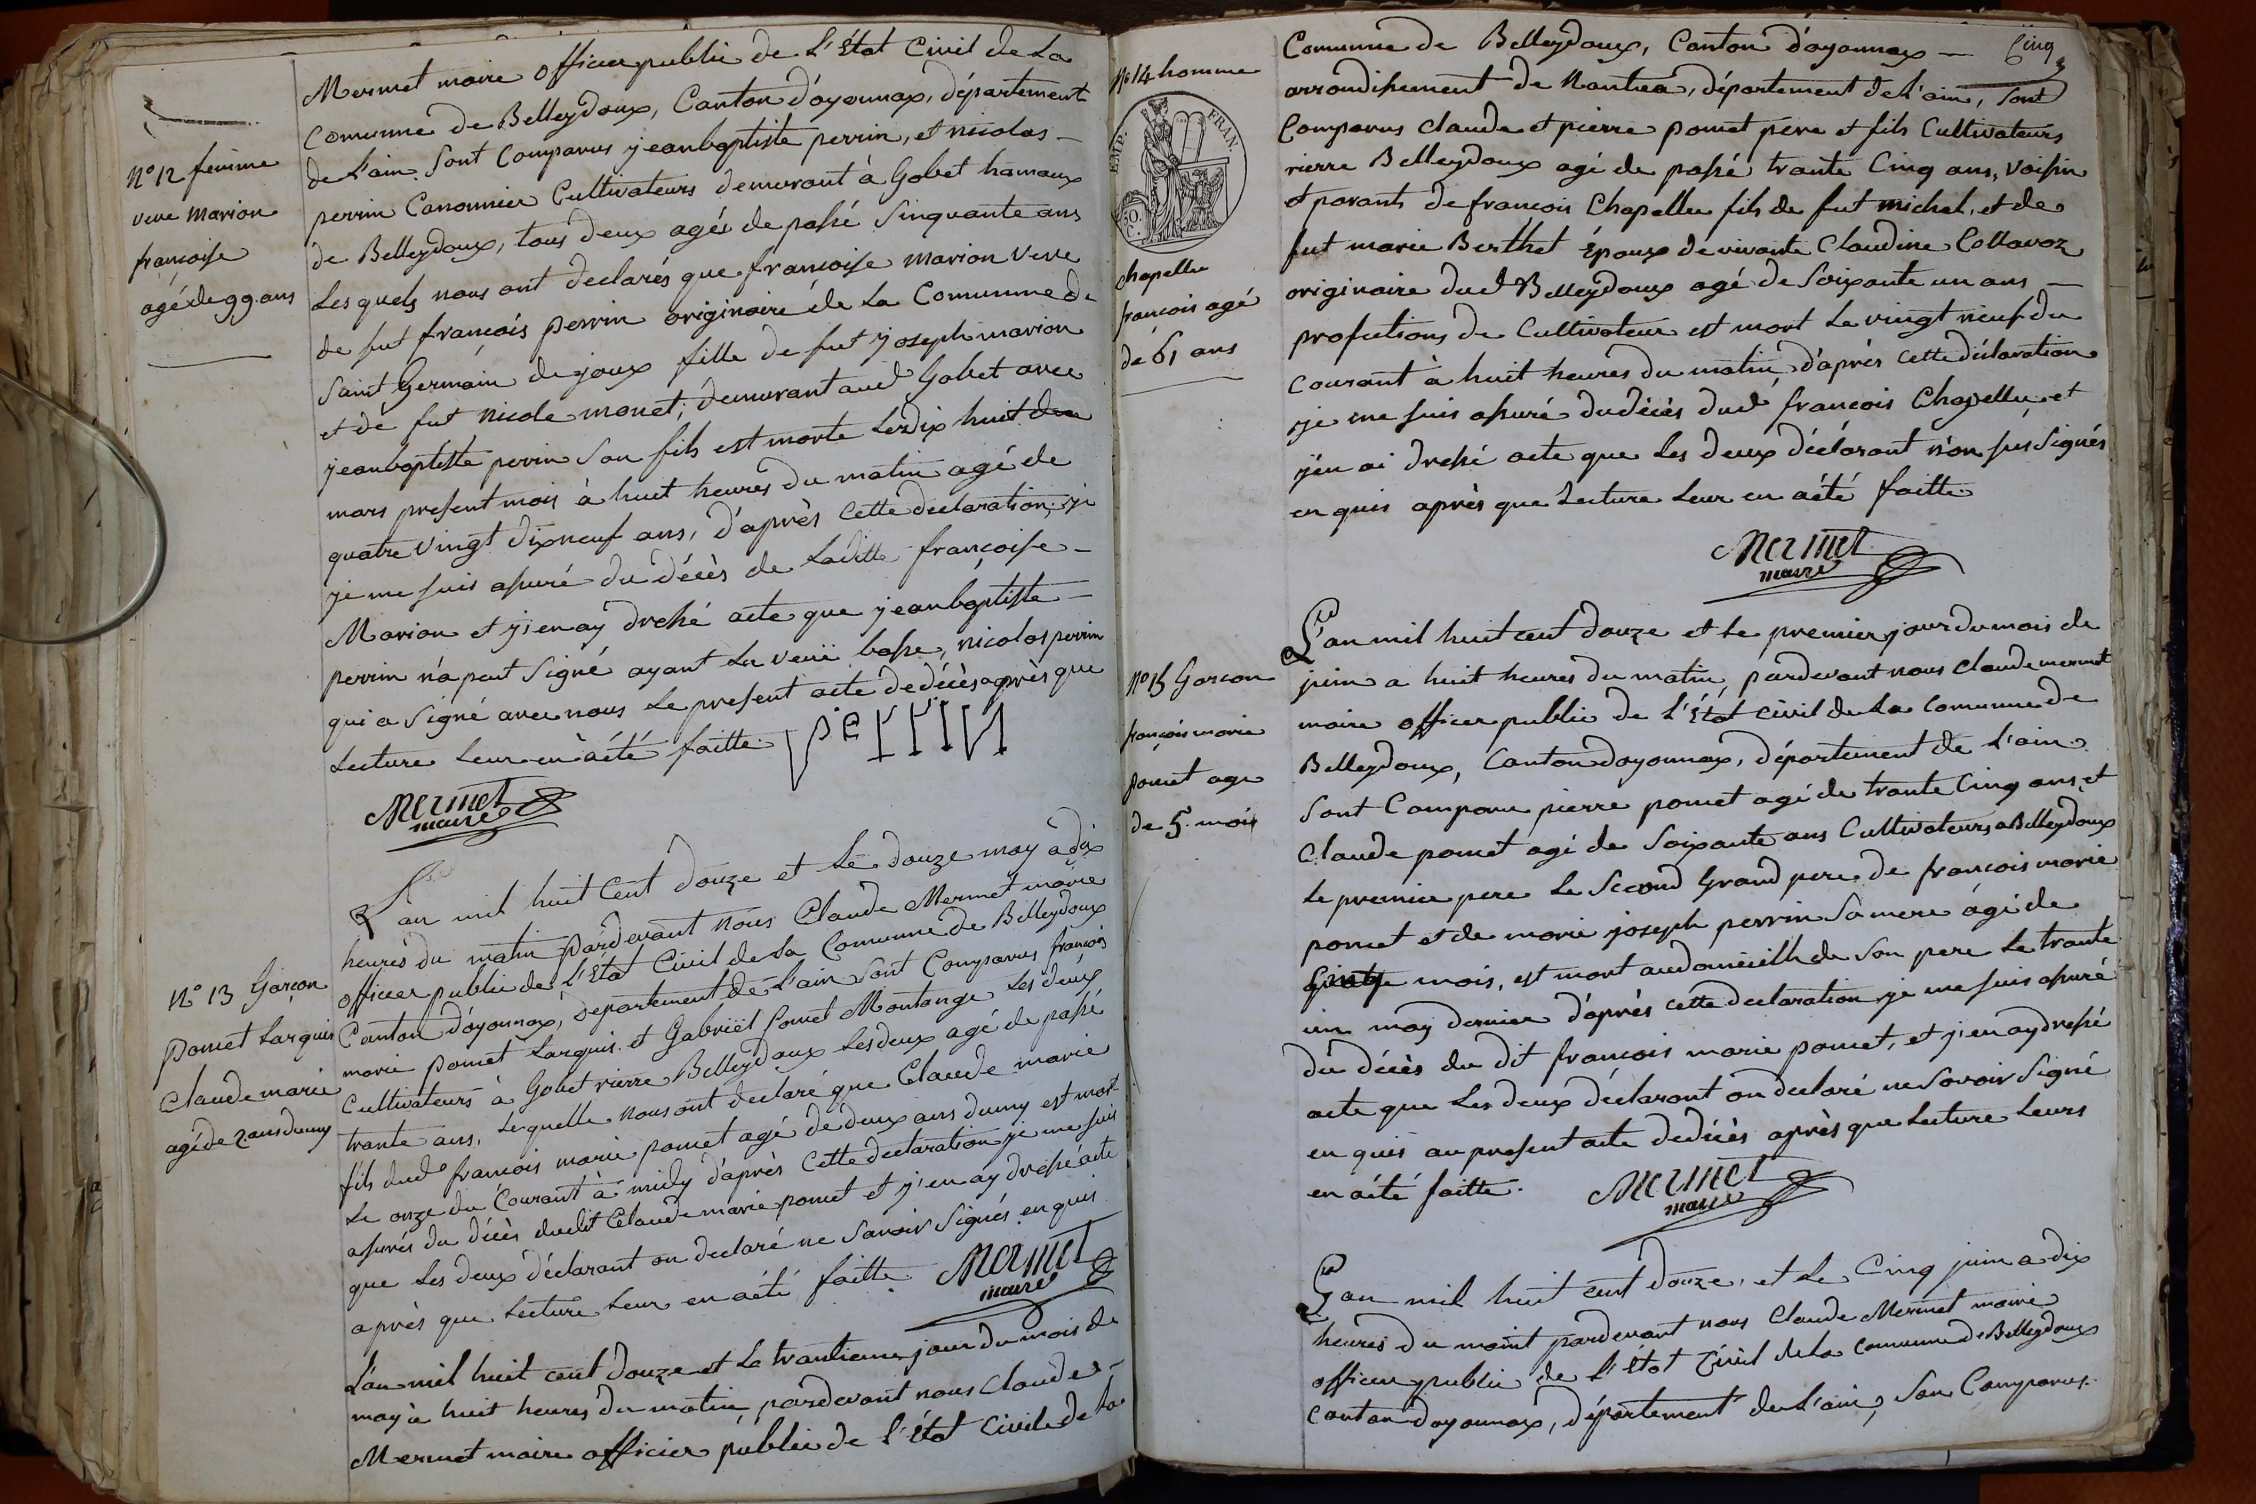 Mermet maire officier public de L'État Civil de La
Comunne de Belleydoux, Canton d'oyonnax, département
de L'ain Sont Comparus jeanbaptiste perrin, et nicolas
perrin Canonnier Cultivateurs demeurant à Gobet hamaux
de Belleydoux, tous deux agés de passé Sinquante ans
Lesquels nous ont declarés que françoise marion veve
de fut françois perrin originaire de La Comunne de
Saint Germain de joux fille de fut joseph marion
et de fut nicole monet, demeurant aud Gobet avec
jeanbaptiste perrin Son fils est morte Le dix huit du
mars present mois à huit heures du matin agé de
quatre vingt dixneuf ans, d'après cette declaration, je
je me suis assuré du décès de Laditte françoise
Marion et j'en ay dressé acte que jeanbaptiste
perrin n'a peut Signé ayant La veuë basse, nicolas perrin
qui a Signé avec nous Le present acte de décès après que
Lecture Leur en à été faitte. perrin
Mermet
maire
N° 12 femme
veve Marion
françoise
agé de 99 ans
L'an mil huit Cent douze et Le douze may a dix
heures du matin pardevant nous Claude Mermet maire
officier public de L'État Civil de La Comunne de Belleydoux
Canton d'oyonnax, departement de L'ain Sont Comparus françois
marie pomet Larguis et Gabriël pomet Montange Les deux
Cultivateurs à Gobet rierre Belleydoux Les deux agé de passé
trante ans, Lequelle nous ont declaré que Claude marie
fils dud françois marie pomet agé de deux ans dumy est mort
Le onze du Courant à midy d'après Cette declaration je me suis
assurés du décès dudit Claude marie pomet et j'en ay dressé acte
que Les deux déclarant on declaré ne Savoir Signés en quis
après que Lecture Leur en aété faitte.
Mermet
maire
N° 13 Garçon
Pomet Larguis
Claude marie
agé de 2 ans dumy
L'an mil huit cent douze et Le trantieme jour du mois de
may à huit heures du matin, pardevant nous Claude
Mermet maire officier public de L'État Civile de La
Cinq
Comunne de Belleydoux, Canton d'oyonnax
arrondissement de Nantua, département de L'ain, Sont
Comparus Claude et pierre pomet pere et fils Cultivateurs
rierre Belleydoux agé de passé trante Cinq ans, voisin
et parants de françois Chapellu fils de fut michel, et de
fut marie Berthet Époux de vivante Claudine Collavoz
originaire dud Belleydoux agé de Soixante un ans
profetions de Cultivateur est mort Le vingt neuf du
Courant à huit heures du matin, d'après cette déclaration
je me suis assuré du décès dud françois Chapellu et
j'en ai dressé acte que Les deux déclarant n'on sus Signés
en quis après que Lecture Leur en aété faitte
Mermet
maire
N° 14 homme
EMP. FRAN.
chapellu
françois agé
de 61 ans
L'an mil huit cent douze et Le premier jour du mois de
juin a huit heures du matin, pardevant nous Claude mermet
maire officier public de L'État Civil de La Comunne de
Belleydoux, Canton doyonnax, département de L'ain
Sont Comparu pierre pomet agé de trante Cinq ans, et
Claude pomet agé de Soixante ans Cultivateurs a Belleydoux
Le premier pere Le Second Grand pere de françois marie
pomet et de marie joseph perrin Sa mere agé de
mois, est mort audomicille de Son pere Le trante
un may dernier d'après cette declaration je me suis assuré
du décès du dit françois marie pomet, et j'en ay dressé
acte que Les deux déclarant on declaré ne Savoir Signé
en quis au present acte de décès après que Lecture Leurs
en aété faitte.
Mermet
maire
N° 15 Garcon
françois marie
pomet age
de 5 mois
L'an mil huit cent douze, et Le Cinq juin a dix
heures du matint pardevant nous Claude Mermet maire
officier public de L'État Civil de La Comunne de Belleydoux
Canton doyonnax, département de L'ain, Son Comparus